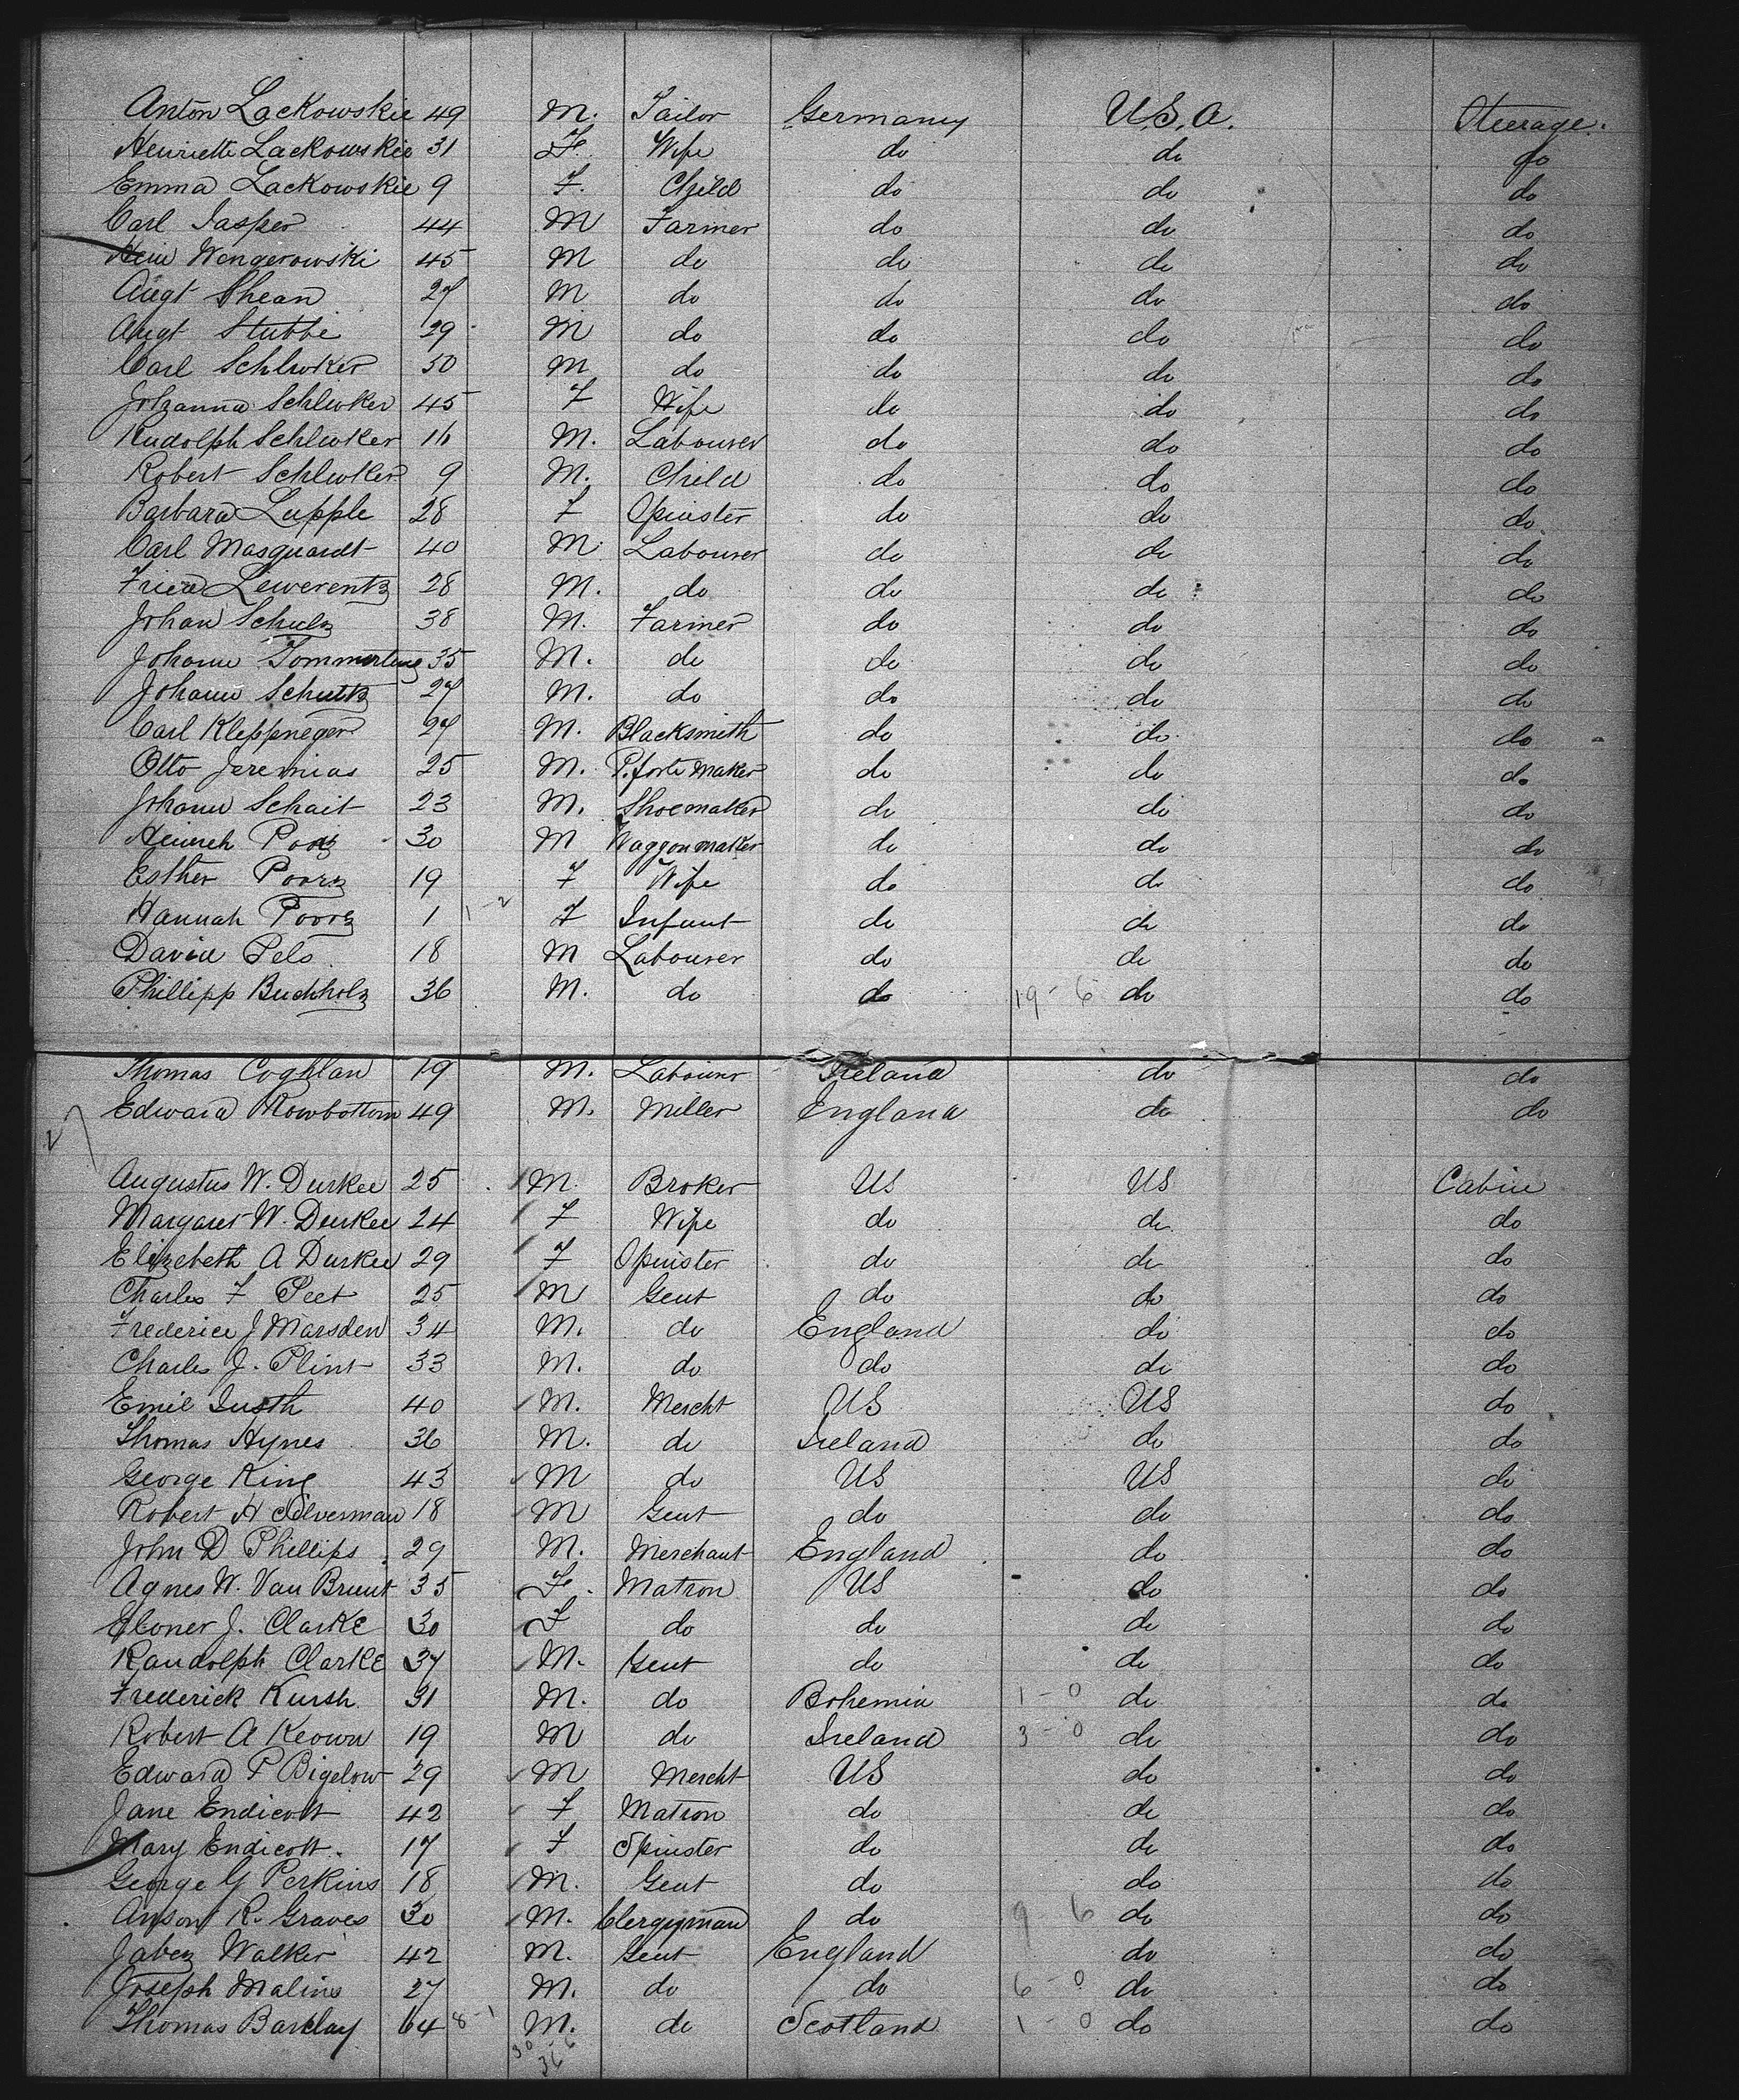 Anton Lackowskie 49 M. Tailor Germany U.S.A. Steerage.
Henriette Lackowskie 31 F. Wife do do do
Emma Lackowskie 9 F. Child do do do
Carl Jasper 44 M Farmer do do do
Wengerowski 45 M do do do do
Augt Shean 27 M do do do do
Augt Stubbe 29 M do do do do
Carl 50 M do do do do
Johanna 45 F Wife do do do
Rudolph 16 M. Labourer do do do
Robert 9 M. Child do do do
Barbara Lupple 28 F Spinster do do do
Carl Masquardt 40 M Labourer do do do
Lewerentz 28 M. do do do do
Johan Schulz 38 M. Farmer do do do
Johann 35 M. do do do do
Johann Schultz 27 M. do do do do
Carl Kleppneger 27 M. Blacksmith do do do
Otto Jeremias 25 M. P. forte Maker do do do
Johann Schait 23 M. Shoemaker do do do
30 M Waggonmaker do do do
Esther Poorz 19 F Wife do do do
Hannah Poorz 1 1-2 F Infant do do do
David Pels 18 M Labourer do do do
Phillipp Buchholz 36 M. do do 19-6 do do
Thomas Coghlan 19 M. Labourer Ireland do do
27 Edward Rowbottom 49 M. Miller England do do
Augustus W. Durkee 25 M. Broker US US Cabin
Margaret W. Durkee 24 F Wife do do do
Elizebeth A Durkee 29 F Spinster do do do
Charles F Peet 25 M Gent do do do
Frederick J Marsden 34 M. do England do do
Charles J. Plint 33 M. do do do do
Emil Justh 40 M. Mercht US US do
Thomas Hynes 36 M. do Ireland do do
George King 43 M do US US do
Robert H Silverman 18 M Gent do do do
John D Phillips 29 M. Merchant England do do
Agnes W. Van Brunt 35 F. Matron US do do
J. Clarke 30 F do do do do
Randolph Clarke 37 M. Gent do do do
Frederick Kursh 31 M. do Bohemia 1-0 do do
Robert A Keown 19 M do Ireland 3-0 do do
Edward P Bigelow 29 M Mercht US do do
Jane Endicott 42 F Matron do do do
Mary Endicott. 17 F Spinster do do do
George G Perkins 18 M. Gent do do do
Anson R. Graves 30 M. Clergyman do 9 6 do do
Jabez Walker 42 M. Gent England do do
Joseph Malins 27 M. do do 6-0 do do
Thomas Barclay 64 8-1 M. do Scotland 1-0 do do